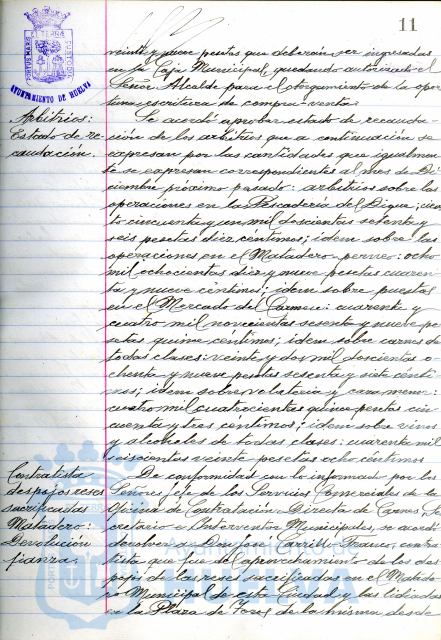 11
PORTUS MARIS ET TERRÆ CUSTODIA
AYUNTAMIENTO DE HUELVA
veinte y nueve pesetas que deberán ser ingresadas
en la Caja Municipal, quedando autorizado el
Señor Alcalde para el otorgamiento de la opor-
tuna escritura de compra-venta.
Arbitrios:
Estado de re-
caudación.
Se acordó aprobar estado de recauda-
ción de los arbitrios que a continuación se
expresan por las cantidades que igualmen-
te se expresan correspondientes al mes de Di-
ciembre próximo pasado: arbitrios sobre las
operaciones en la Pescadería del Dique; cien-
to cincuenta y un mil doscientas setenta y
seis pesetas diez céntimos; idem sobre las
operaciones en el Matadero
mil ochocientas diez y nueve pesetas cuaren-
ta y nueve céntimos; idem sobre puestos
en el Mercado del Carmen: cuarenta y
cuatro mil novecientas sesenta y nueve pe-
setas quince céntimos; idem sobre carnes de
todas clases: veinte y dos mil doscientas o-
chenta y nueve pesetas sesenta y siete cénti-
mos; idem sobre volatería y caza menor:
cuatro mil cuatrocientas quince pesetas cin-
cuenta y tres céntimos; idem sobre vinos
y alcoholes de todas clases: cuarenta mil
seiscientas veinte pesetas ocho céntimos
Contratista
despojos reses
sacrificadas
Matadero:
Devolución
fianza.
De conformidad con lo informado por los
Señores Jefe de los Servicios Comerciales de la
Oficina de Contratación Directa de Carnes, Se-
cretario e Interventor Municipales, se acordó
devolver a Don José Franco, contra-
tista que fue del aprovechamiento de los des-
pojos de las reses sacrificadas en el Matade-
ro Municipal de esta Ciudad y las lidiadas
en la Plaza de Toros de la misma desde
Ayuntamiento de
HUELVA